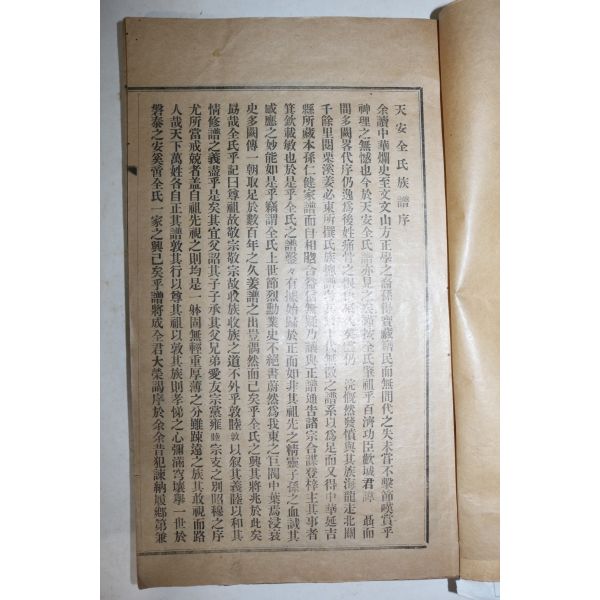 天安全氏族譜序
余讀中華爛史至文文山方正學之裔孫得寶藏於民而無間代之失未嘗不擊節嘆賞乎
神理之無憾也今於天安全氏譜亦見之矣 按全氏肇祖乎百濟功臣歡城君諱 聶而
間多闕畧代序仍逸爲後姓痛骨之恨 浣慨然發憤與其族海龍走北關
千餘里閱栗溪姜必東所撰氏族總譜 代無徵之譜系以爲足而又得中華延吉
縣所藏本孫仁健家譜而自相脗合益信無疑乃議與正譜通告諸宗合諜登梓主其事者
箕欽載敏也於是乎全氏之譜鑿々有據始歸於正而如非其祖先之精靈子孫之血誠其
感應之妙能如是乎竊謂全氏上世節烈勳業史不絕書蔚然爲我東之巨閥中葉焉浸衰
史多闕傳一朝取足於數百年之久姜譜之出豈偶然而已矣乎全氏之興其將兆於此矣
勗哉全氏乎記曰尊祖故敬宗敬宗故收族收族之道不外乎敦睦敦以叙其義睦以和其
情修譜之義盡乎是矣其宜父詔其子子承其父兄弟愛友宗黨雍睦宗支之別昭穆之序
尤所當戒兢者蓋自祖先視之則均是一躰固無輕重厚薄之分雖疎遠之族其敢視而路
人哉天下萬姓各自正其譜敦其行以尊其祖以敦其族則孝悌之心彌滿穹壤擧一世於
磐泰之安奚啻全氏一家之興已矣乎譜將成全君大榮謁序於余余昔犯諫納履鄕第兼